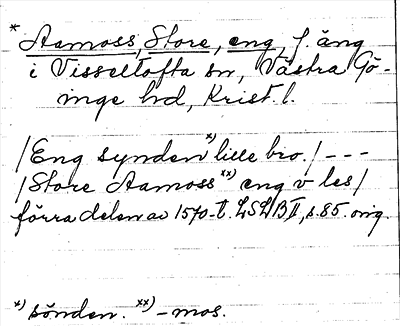 * Aamoss, Store, eng, f. äng
i Visseltofta sn, Västra Gö-
inge hd, Krist. l.
/Eng synden*) lille bro./ - - -
/Store Aamoss**) eng v les/
förra delen av 1570-t. LSLB II, s. 85. orig.
*) sönden. **) -mos.